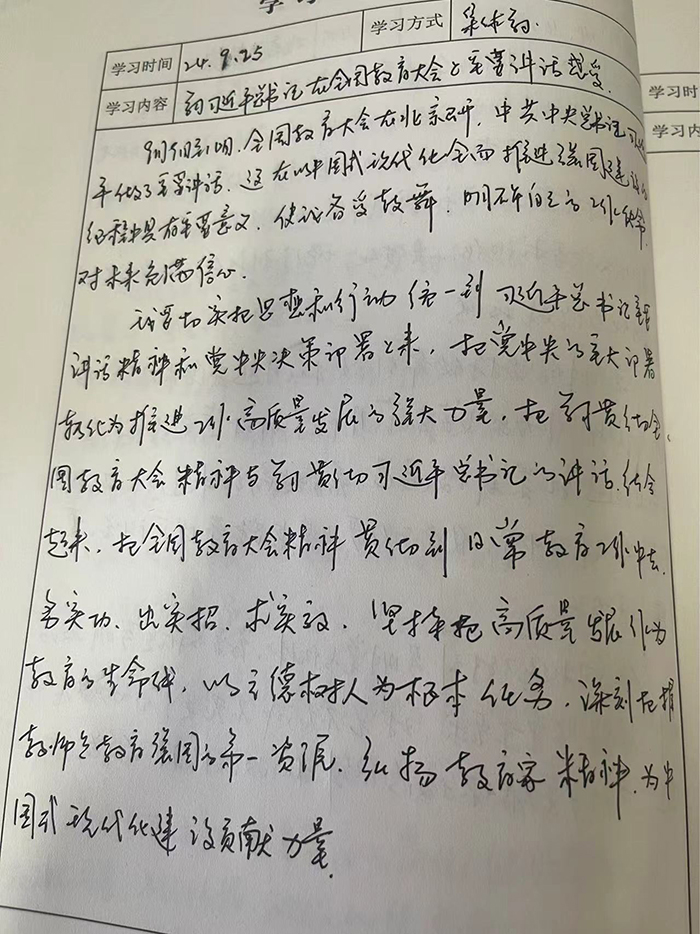 学习
学习时间 24.9.25 学习方式 集体学习.
学习内容 学习习近平总书记在全国教育大会上重要讲话感受.
9月份期间,全国教育大会在北京召开,中共中央总书记习近
平做了重要讲话.这在以中国式现代化全面推进强国建设的
征程中具有重要意义,使我备受鼓舞,明确自己的工作任务,
对未来充满信心.
我要切实把思想和行动统一到习近平总书记重要
讲话精神和党中央决策部署上来,把党中央的重大部署
转化为推进工作高质量发展的强大力量,把学习贯彻全
国教育大会精神与学习贯彻习近平总书记的讲话结合
起来,把全国教育大会精神贯彻到日常教育工作中去,
务实功、出实招、求实效,坚持把高质量发展作为
教育的生命线,以立德树人为根本任务,深刻把握
教师是教育强国的第一资源,弘扬教育家精神,为中
国式现代化建设贡献力量.
学习时
学习内